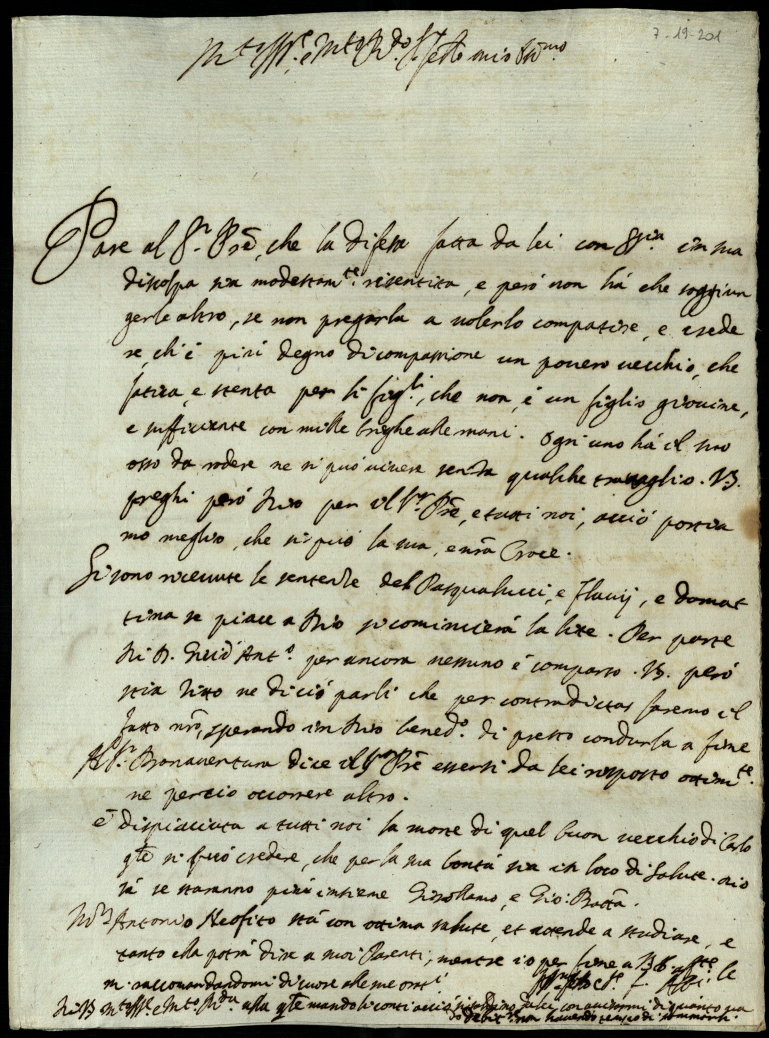 7-19-201
M.to Ill.re e M.to R.do S.r fratello mio Oss.mo
Pare al S.r Prē, che la difesa fatta da lei con in sua
discolpa sia modestam.te risentita, e però non há che soggiun
gerle altro, se non pregarla a volerlo compatire, e crede
re, ch'è più degno di compassione un povero vecchio, che
fatica, e stenta per li figli, che non è un figlio giovine,
e sufficiente con mille brighe alle mani. Ogni uno há il suo
osso da rodere ne si può vivere senza qualche travaglio. V.S.
preghi però Dio per il S.r Prē, e tutti noi, acciò portia
mo meglio, che si può la sua, e nrā Croce.
Si sono ricevute le sentenze del Pasqualucci, e Flavij, e domat
tina se piace a Dio si comincierà la lite. Per parte
di D. Ant.o per ancora nessuno è comparso. V.S. però
stia zitto ne di ciò parli che per contradictas faremo il
fatto nrō, sperando in Dio bened.o di presto condurla a fine
Al S.r Bonaventura dice il S.r Prē essersi da lei risposto ottimam.te
ne perciò occorrere altro.
è dispiaciuta a tutti noi la morte di quel buon vecchio di Carlo
q.le si può credere, che per la sua bontà sia in loco di salute.
se staranno più insieme Girollamo, e Gio: Battā.
Antonio Neofito stà con ottima salute, et attende a studiare, e
tanto ella potrà dire a suoi Parenti, mentre io per fine a V.S.
raccomandandomi di cuore alle sue
Di V.S. M.to Ill.re e M.to R.da alla q.le mando li conti acciò di quanto sia
debit.e non havendo tempo di